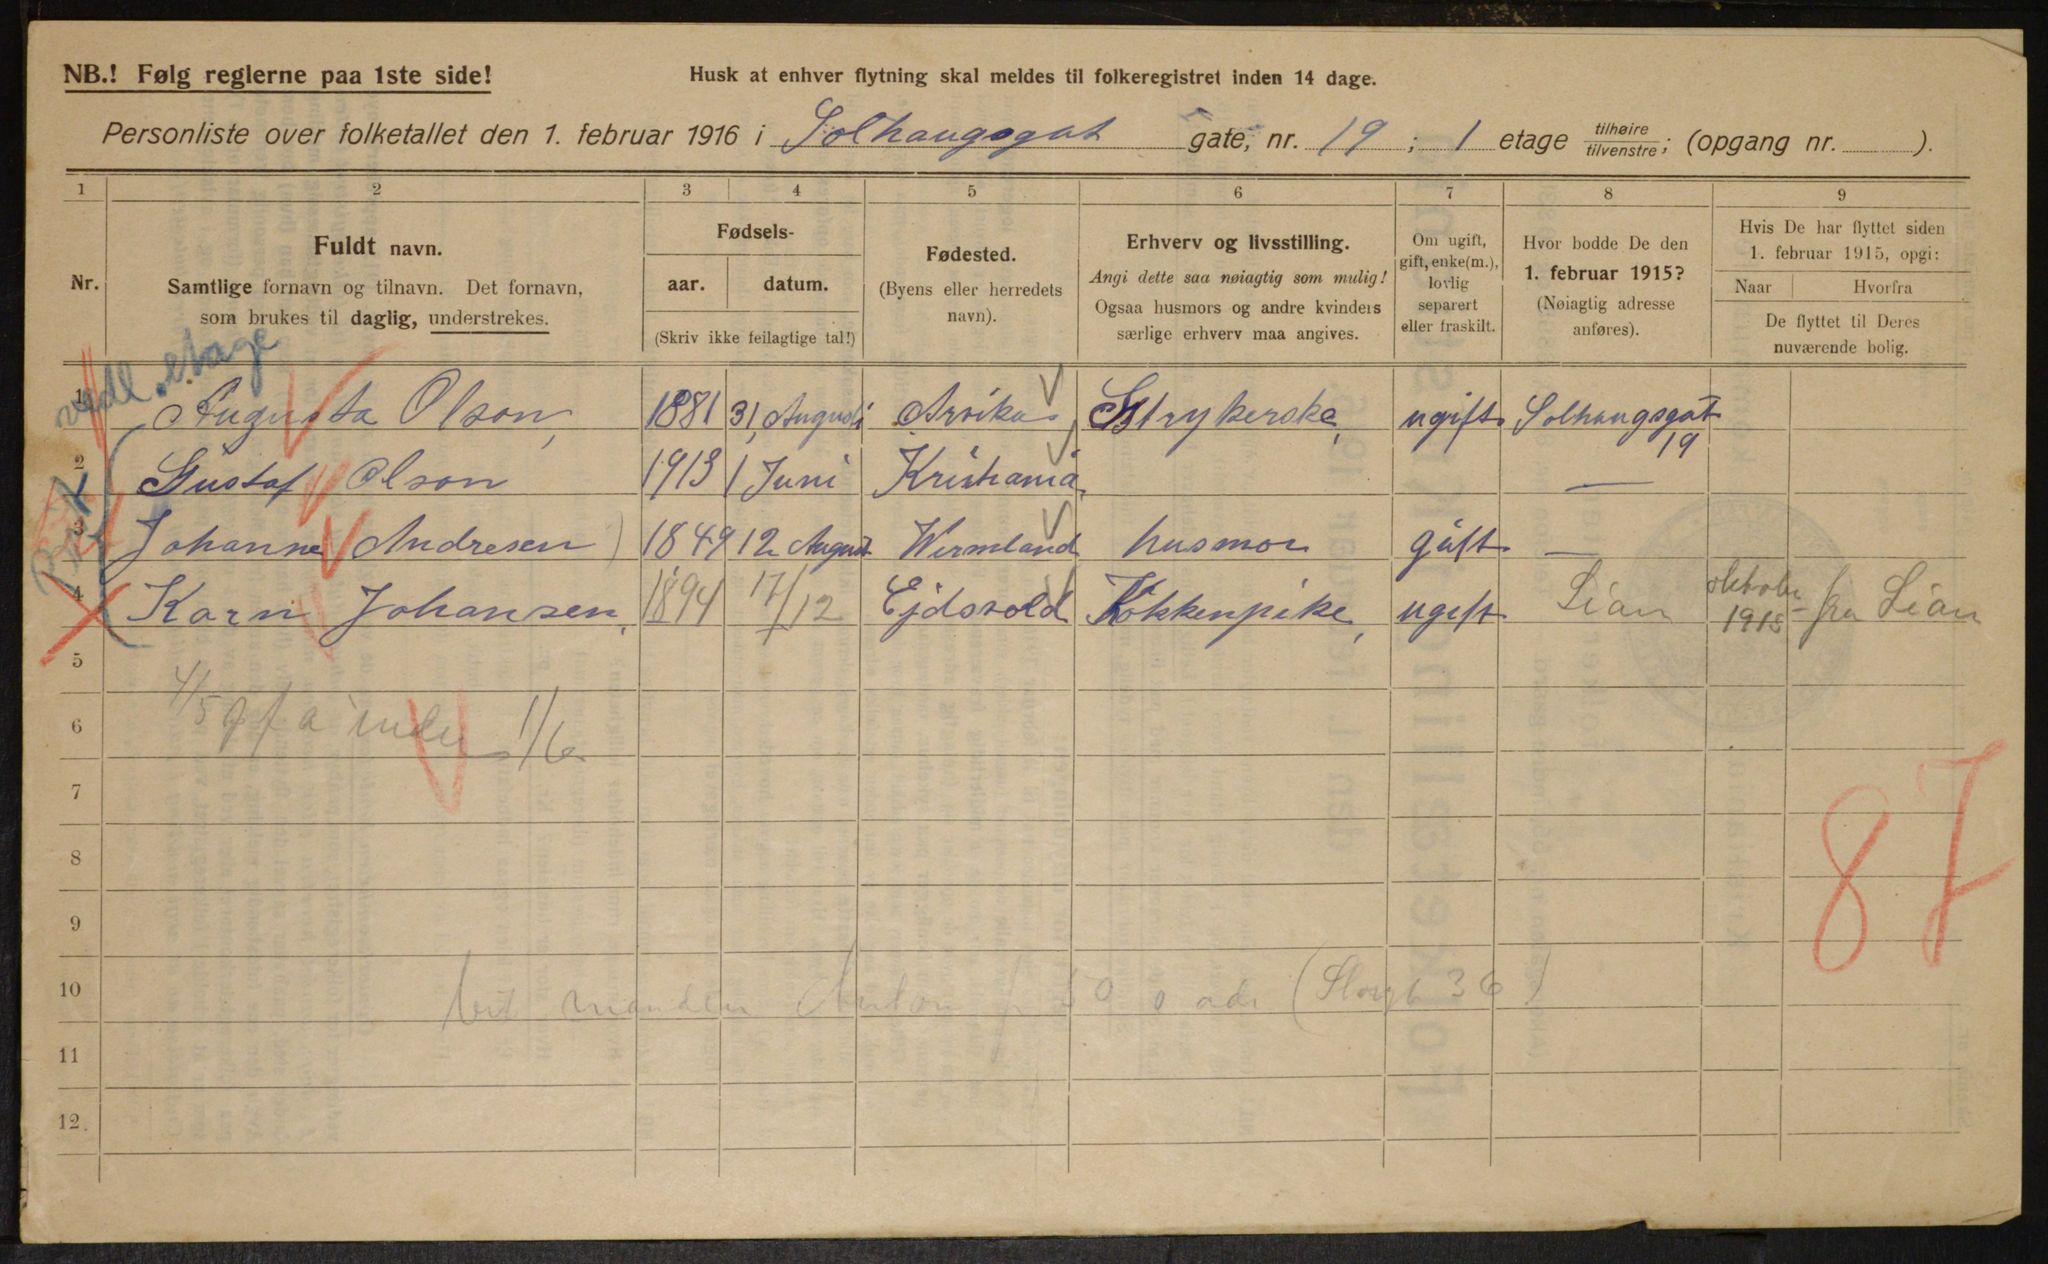 NB.! Følg reglerne paa 1ste side!
Husk at enhver flytning skal meldes til folkeregistret inden 14 dage.
Personliste over folketallet den 1. februar 1916 i Solhaugsgat gate, nr. 19 ; 1 etage tilhøire/tilvenstre; (opgang nr. ).
1 2 3 4 5 6 7 8 9
Nr.
Fuldt navn.
Samtlige fornavn og tilnavn. Det fornavn,
som brukes til daglig, understrekes.
Fødsels-
aar. datum.
(Skriv ikke feilagtige tal!)
Fødested.
(Byens eller herredets
navn).
Erhverv og livsstilling.
Angi dette saa nøiagtig som mulig!
Ogsaa husmors og andre kvinders
særlige erhverv maa angives.
Om ugift,
gift, enke(m.),
lovlig
separert
eller fraskilt.
Hvor bodde De den
1. februar 1915?
(Nøiagtig adresse
anføres).
Hvis De har flyttet siden
1. februar 1915, opgi:
Naar Hvorfra
De flyttet til Deres
nuværende bolig.
vedl. etage
1 Augusta Olson, 1881 31, Augusti Arvika Strykerske, ugift Solhaugsgat 19
2 Gustaf Olson 1913 1 Juni Kristiania —
3 Johanne Andresen ) 1849 12 August Wermland husmor gift —
4 Karn Johansen, 1894 17/12 Ejdsvold Kokkenpike, ugift Lian oktober 1915 - fra Lian
5
4/5 1/6
6
7
87
8
9
10 manden Anton
11
12